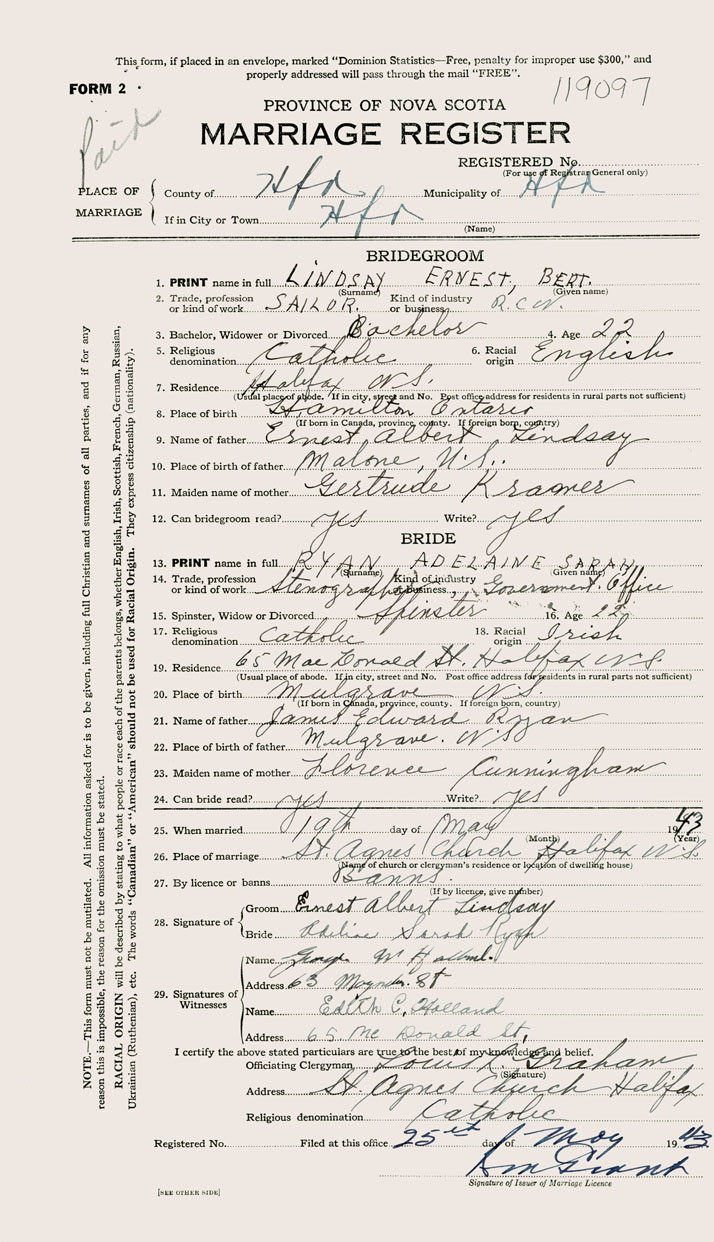 This form, if placed in an envelope, marked "Dominion Statistics—Free, penalty for improper use $300," and
properly addressed will pass through the mail "FREE".
FORM 2
119097
Paid
PROVINCE OF NOVA SCOTIA
MARRIAGE REGISTER
REGISTERED No.
(For use of Registrar General only)
PLACE OF MARRIAGE
County of Hfx Municipality of Hfx
If in City or Town Hfx
(Name)
BRIDEGROOM
1. PRINT name in full LINDSAY ERNEST, BERT.
(Surname) (Given name)
2. Trade, profession or kind of work SAILOR. Kind of industry or business R.C.N.
3. Bachelor, Widower or Divorced Bachelor 4. Age 22
5. Religious denomination Catholic 6. Racial origin English
7. Residence Halifax N.S.
(Usual place of abode. If in city, street and No. Post office address for residents in rural parts not sufficient)
8. Place of birth Hamilton Ontario
(If born in Canada, province, county. If foreign born, country)
9. Name of father Ernest Albert Lindsay
10. Place of birth of father Malone, U.S.
11. Maiden name of mother Gertrude Kramer
12. Can bridegroom read? yes Write? yes
BRIDE
13. PRINT name in full RYAN ADELAINE SARAH
(Surname) (Given name)
14. Trade, profession or kind of work Stenographer Kind of industry or business Government Office
15. Spinster, Widow or Divorced Spinster 16. Age 22
17. Religious denomination Catholic 18. Racial origin Irish
19. Residence 65 Mac Donald St. Halifax N.S.
(Usual place of abode. If in city, street and No. Post office address for residents in rural parts not sufficient)
20. Place of birth Mulgrave N.S.
(If born in Canada, province, county. If foreign born, country)
21. Name of father James Edward Ryan
22. Place of birth of father Mulgrave. N.S.
23. Maiden name of mother Florence Cunningham
24. Can bride read? yes Write? yes
25. When married 19th day of May 1943
(Month) (Year)
26. Place of marriage St. Agnes Church Halifax N.S.
(Name of church or clergyman's residence or location of dwelling house)
27. By licence or banns Banns.
(If by licence, give number)
28. Signature of
Groom Ernest Albert Lindsay
Bride Adeline Sarah Ryan
29. Signatures of Witnesses
Name George W
Address 63 St
Name Edith C. Holland
Address 65 Mc Donald St,
I certify the above stated particulars are true to the best of my knowledge and belief.
Officiating Clergyman, Louis C. Graham
(Signature)
Address St. Agnes Church Halifax
Religious denomination Catholic
Registered No. Filed at this office 25th day of May 1943
Signature of Issuer of Marriage Licence
[SEE OTHER SIDE]
NOTE.—This form must not be mutilated. All information asked for is to be given, including full Christian and surnames of all parties, and if for any
reason this is impossible, the reason for the omission must be stated.
RACIAL ORIGIN will be described by stating to what people or race each of the parents belongs, whether English, Irish, Scottish, French, German, Russian,
Ukrainian (Ruthenian), etc. The words "Canadian" or "American" should not be used for Racial Origin. They express citizenship (nationality).